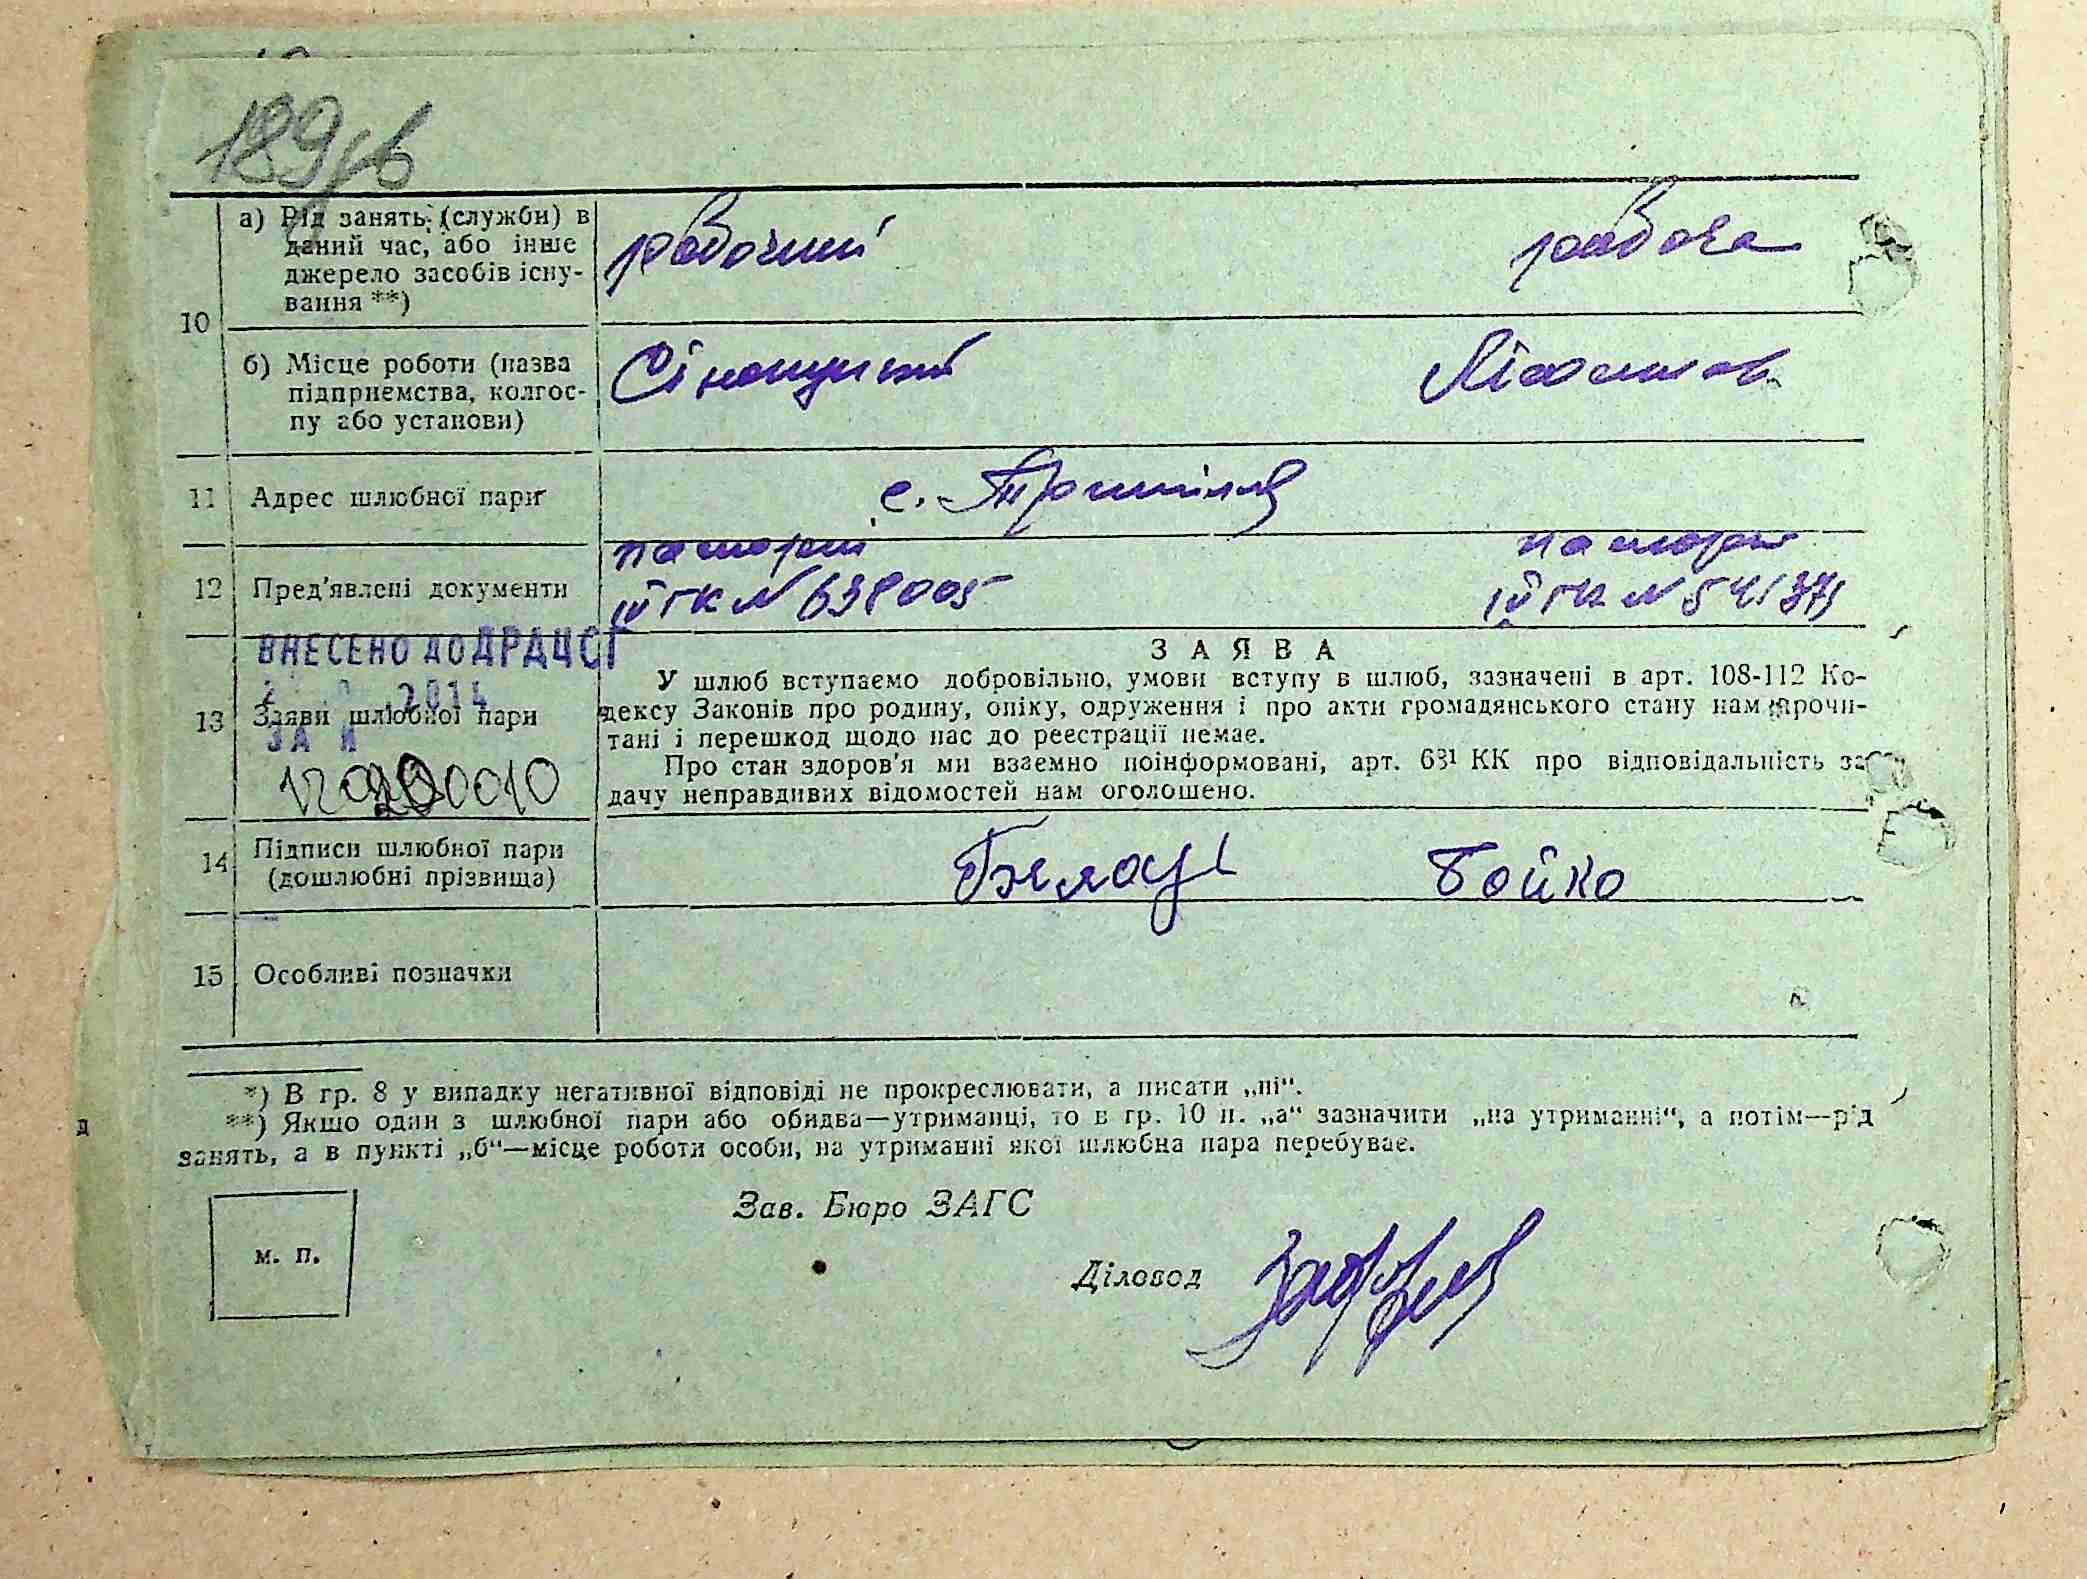 189зв
10 а) Рід занять (служби) в даний час, або інше джерело засобів існування **) рабочий рабоча
б) Місце роботи (назва підприємства, колгоспу або установи)
11 Адрес шлюбної пари с.
12 Пред'явлені документи паспорт паспорт
IV ГК N 638005 IV ГК N 541371
ВНЕСЕНО ДО ДРАЦСГ
2014
ЗА
13 Заяви шлюбної пари
ЗАЯВА
У шлюб вступаємо добровільно, умови вступу в шлюб, зазначені в арт. 108-112 Ко-
дексу Законів про родину, опіку, одруження і про акти громадянського стану нам прочи-
тані і перешкод щодо нас до реестрації немає.
Про стан здоров'я ми взаємно поінформовані, арт. 63¹ КК про відповідальність за
дачу неправдивих відомостей нам оголошено.
14 Підписи шлюбної пари
(дошлюбні прізвища) Бойко
15 Особливі позначки
*) В гр. 8 у випадку негативної відповіді не прокреслювати, а писати „ні“.
**) Якшо один з шлюбної пари або обидва—утриманці, то в гр. 10 п. „а“ зазначити „на утриманні“, а потім—рід
занять, а в пункті „б“—місце роботи особи, на утриманні якої шлюбна пара перебуває.
Зав. Бюро ЗАГС
м. п.
Діловод